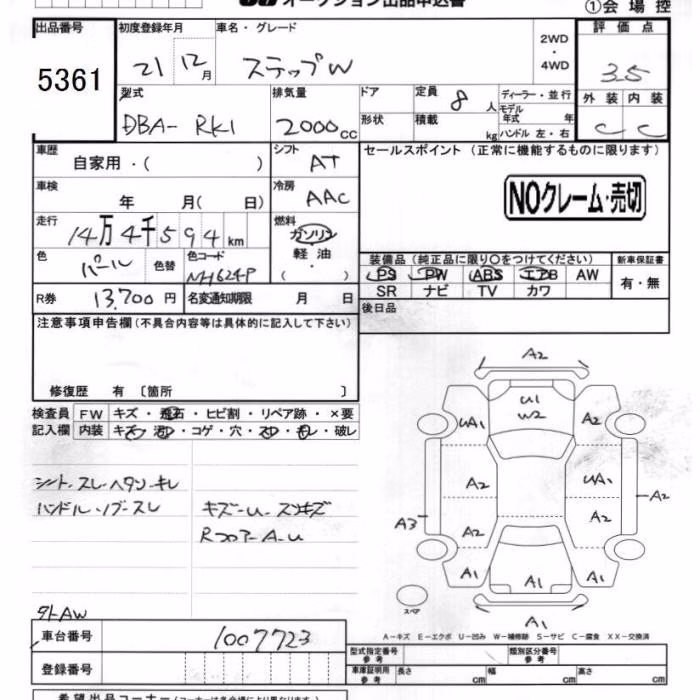 オークション出品申込書
①会場控
出品番号
5361
初度登録年月
21 12月
車名・グレード
ステップW
2WD
・
4WD
評価点
3.5
外装 内装
C C
型式
DBA- RK1
排気量
2000cc
ドア
形状
定員 8 人
積載 kg
ディーラー・並行
モデル年式 年
ハンドル 左・右
車歴
自家用・( )
シフト
AT
車検
年 月( 日)
冷房
AAC
走行
14万4千594km
燃料
ガソリン
軽油
( ・ )
色
パール
色替
色コード
NH624P
R券 13,700円
名変通知期限 月 日
セールスポイント (正常に機能するものに限ります)
NOクレーム・売切
装備品(純正品に限り○をつけてください)
PS PW ABS エアB AW
SR ナビ TV カワ
新車保証書
有・無
後日品
注意事項申告欄(不具合内容等は具体的に記入して下さい)
修復歴 有 〔箇所 〕
検査員記入欄
FW キズ・飛石・ヒビ割・リペア跡・×要
内装 キズ・汚れ・コゲ・穴・スレ・モレ・破レ
シート・スレ・ヘタン・キレ
ハンドル・ノブ・スレ
キズ-U-スンキズ
RフロアーA-U
外AW
A2
U1
W2
UA1
A2
A2
UA1
A2
A3
A2
A2
A1
A1
A1
A1
スペア
A－キズ E－エクボ U－凹み W－補修跡 S－サビ C－腐食 XX－交換済
車台番号
1007723
登録番号
型式指定番号
参考
類別区分番号
参考
車庫証明用
参考
長さ cm
幅 cm
高さ cm
希望出品コーナー